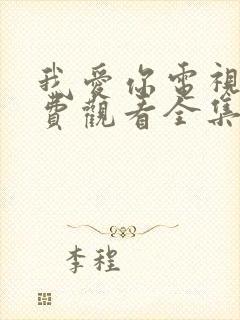 我愛你電視
費觀看全集
李程